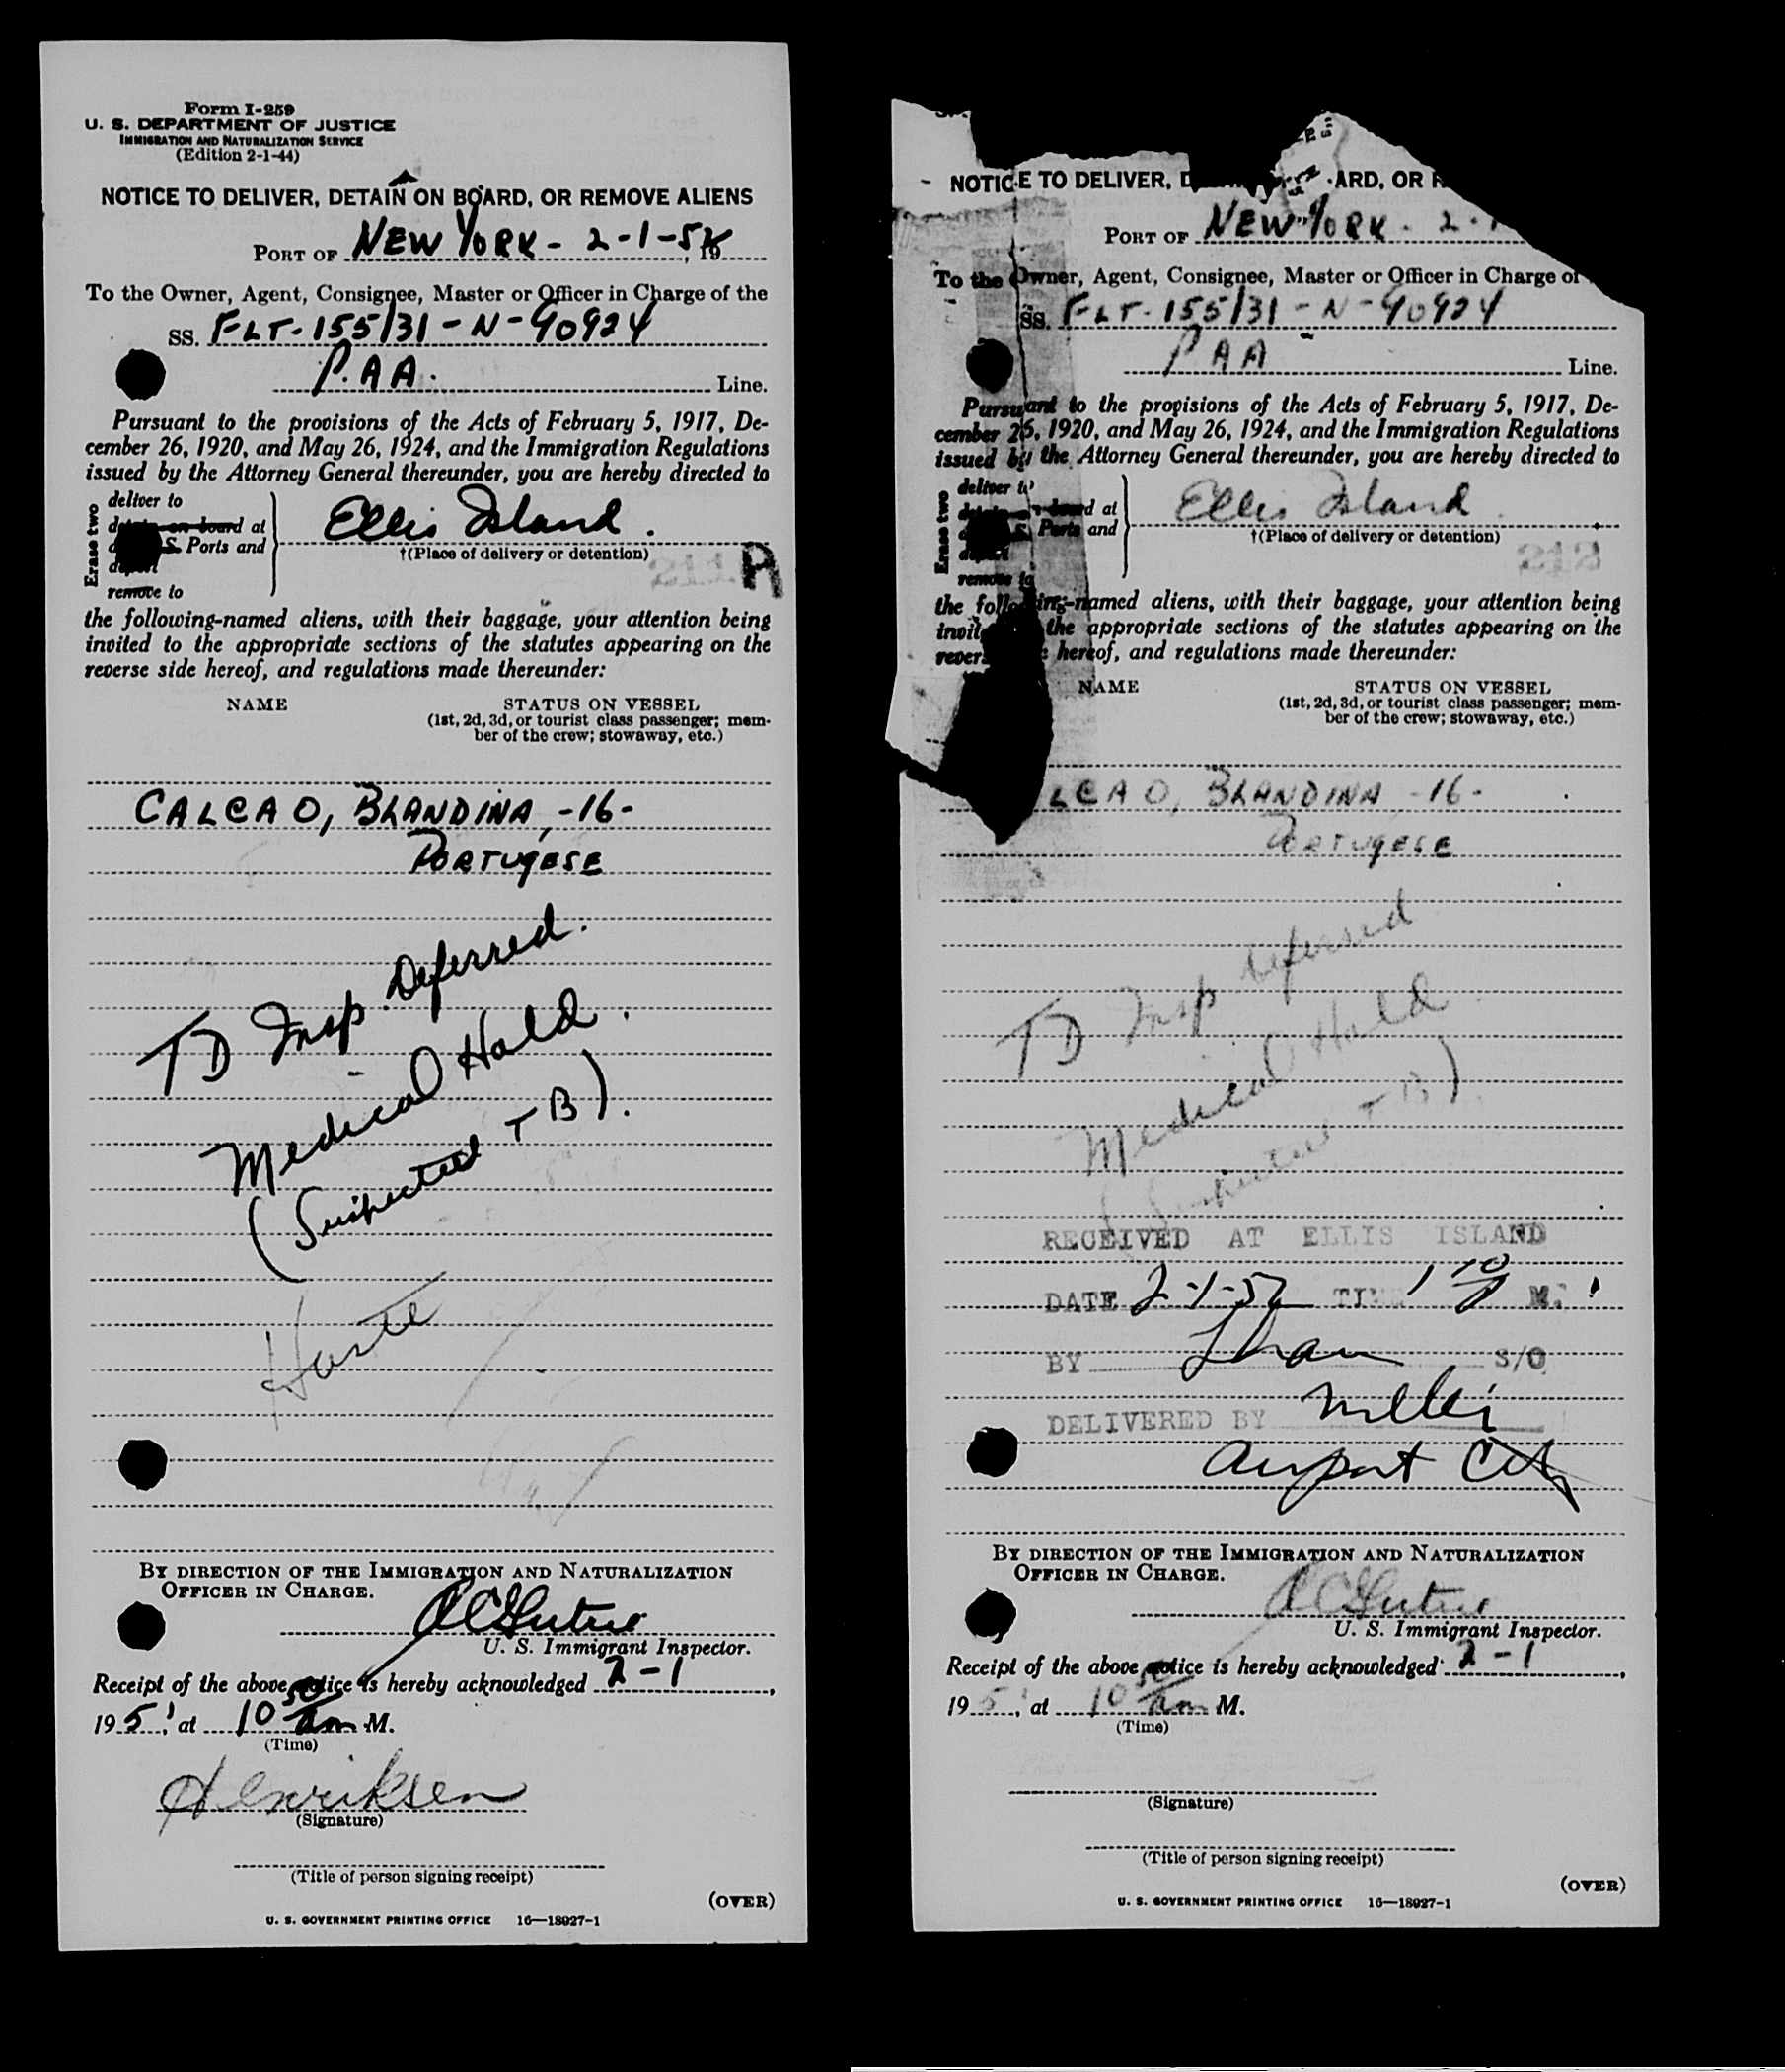 Form I-259
U. S. DEPARTMENT OF JUSTICE
IMMIGRATION AND NATURALIZATION SERVICE
(Edition 2-1-44)
NOTICE TO DELIVER, DETAIN ON BOARD, OR REMOVE ALIENS
PORT OF NEW YORK - 2-1-52, 19
To the Owner, Agent, Consignee, Master or Officer in Charge of the
SS. FLT-155/31-N-90924
P.A.A. Line.
Pursuant to the provisions of the Acts of February 5, 1917, De-
cember 26, 1920, and May 26, 1924, and the Immigration Regulations
issued by the Attorney General thereunder, you are hereby directed to
Erase two
deliver to
detain on board at
S. Ports and
deport
remove to
Ellis Island.
†(Place of delivery or detention)
A
the following-named aliens, with their baggage, your attention being
invited to the appropriate sections of the statutes appearing on the
reverse side hereof, and regulations made thereunder:
NAME STATUS ON VESSEL
(1st, 2d, 3d, or tourist class passenger; mem-
ber of the crew; stowaway, etc.)
CALCAO, BLANDINA, -16-
PORTUGESE
TD Insp. Deferred.
Medical Hold.
(Suspected TB).
BY DIRECTION OF THE IMMIGRATION AND NATURALIZATION
OFFICER IN CHARGE.
U. S. Immigrant Inspector.
Receipt of the above notice is hereby acknowledged 2-1,
195, at 10 50 am M.
(Time)
Henriksen
(Signature)
(Title of person signing receipt)
(OVER)
U. S. GOVERNMENT PRINTING OFFICE 16—18927-1
NOTICE TO DELIVER, D ARD, OR R
PORT OF NEW YORK - 2-1
To the Owner, Agent, Consignee, Master or Officer in Charge of
SS. FLT-155/31-N-90924
PAA Line.
Pursuant to the provisions of the Acts of February 5, 1917, De-
cember 26, 1920, and May 26, 1924, and the Immigration Regulations
issued by the Attorney General thereunder, you are hereby directed to
Erase two
deliver to
board at
S. Ports and
deport
remove to
Ellis Island
†(Place of delivery or detention)
the following-named aliens, with their baggage, your attention being
invit the appropriate sections of the statutes appearing on the
revers hereof, and regulations made thereunder:
NAME STATUS ON VESSEL
(1st, 2d, 3d, or tourist class passenger; mem-
ber of the crew; stowaway, etc.)
LCAO, BLANDINA -16-
PORTUGESE
TD Insp Deferred
Medical Hold.
(Suspected TB).
RECEIVED AT ELLIS ISLAND
DATE 2-1-52 TIME 1 10 P M.
BY S/O
DELIVERED BY Miller
Airport
BY DIRECTION OF THE IMMIGRATION AND NATURALIZATION
OFFICER IN CHARGE.
U. S. Immigrant Inspector.
Receipt of the above notice is hereby acknowledged 2-1,
195, at 10 50 am M.
(Time)
(Signature)
(Title of person signing receipt)
(OVER)
U. S. GOVERNMENT PRINTING OFFICE 16—18927-1